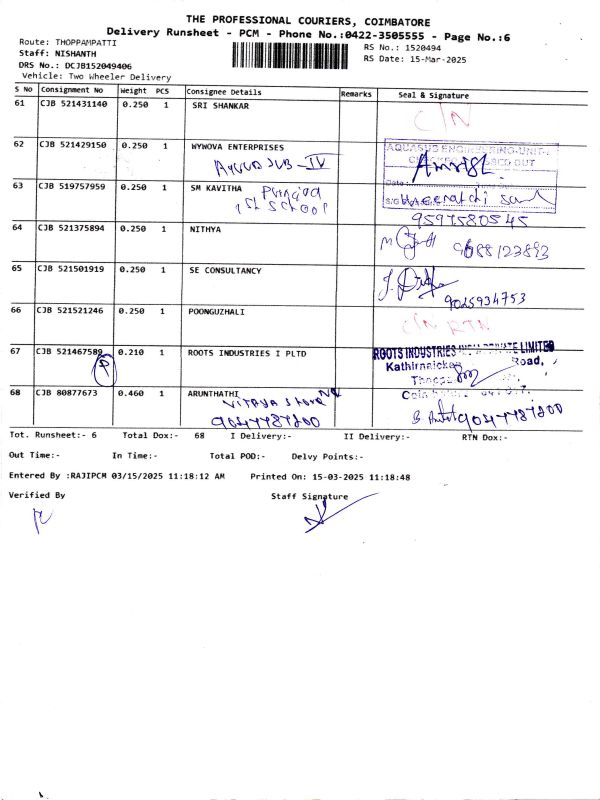 THE PROFESSIONAL COURIERS, COIMBATORE
Delivery Runsheet - PCM - Phone No.:0422-3505555 - Page No.:6
Route: THOPPAMPATTI
RS No.: 1520494
Staff: NISHANTH
RS Date: 15-Mar-2025
DRS No.: DCJB152049406
Vehicle: Two Wheeler Delivery
S No Consignment No Weight PCS Consignee Details Remarks Seal & Signature
61 CJB 521431140 0.250 1 SRI SHANKAR C/N
62 CJB 521429150 0.250 1 WYWOVA ENTERPRISES
AQUASUB ENGINEERING-UNIT-I
63 CJB 519757959 0.250 1 SM KAVITHA
9597580545
64 CJB 521375894 0.250 1 NITHYA
65 CJB 521501919 0.250 1 SE CONSULTANCY
9025934753
66 CJB 521521246 0.250 1 POONGUZHALI C/N RTN
67 CJB 521467589 0.210 1 ROOTS INDUSTRIES I PLTD
P
ROOTS INDUSTRIES INDIA PRIVATE LIMITED
Road,
68 CJB 80877673 0.460 1 ARUNTHATHI
9047787200 9047787200
Tot. Runsheet:- 6 Total Dox:- 68 I Delivery:- II Delivery:- RTN Dox:-
Out Time:- In Time:- Total POD:- Delvy Points:-
Entered By :RAJIPCM 03/15/2025 11:18:12 AM Printed On: 15-03-2025 11:18:48
Verified By Staff Signature